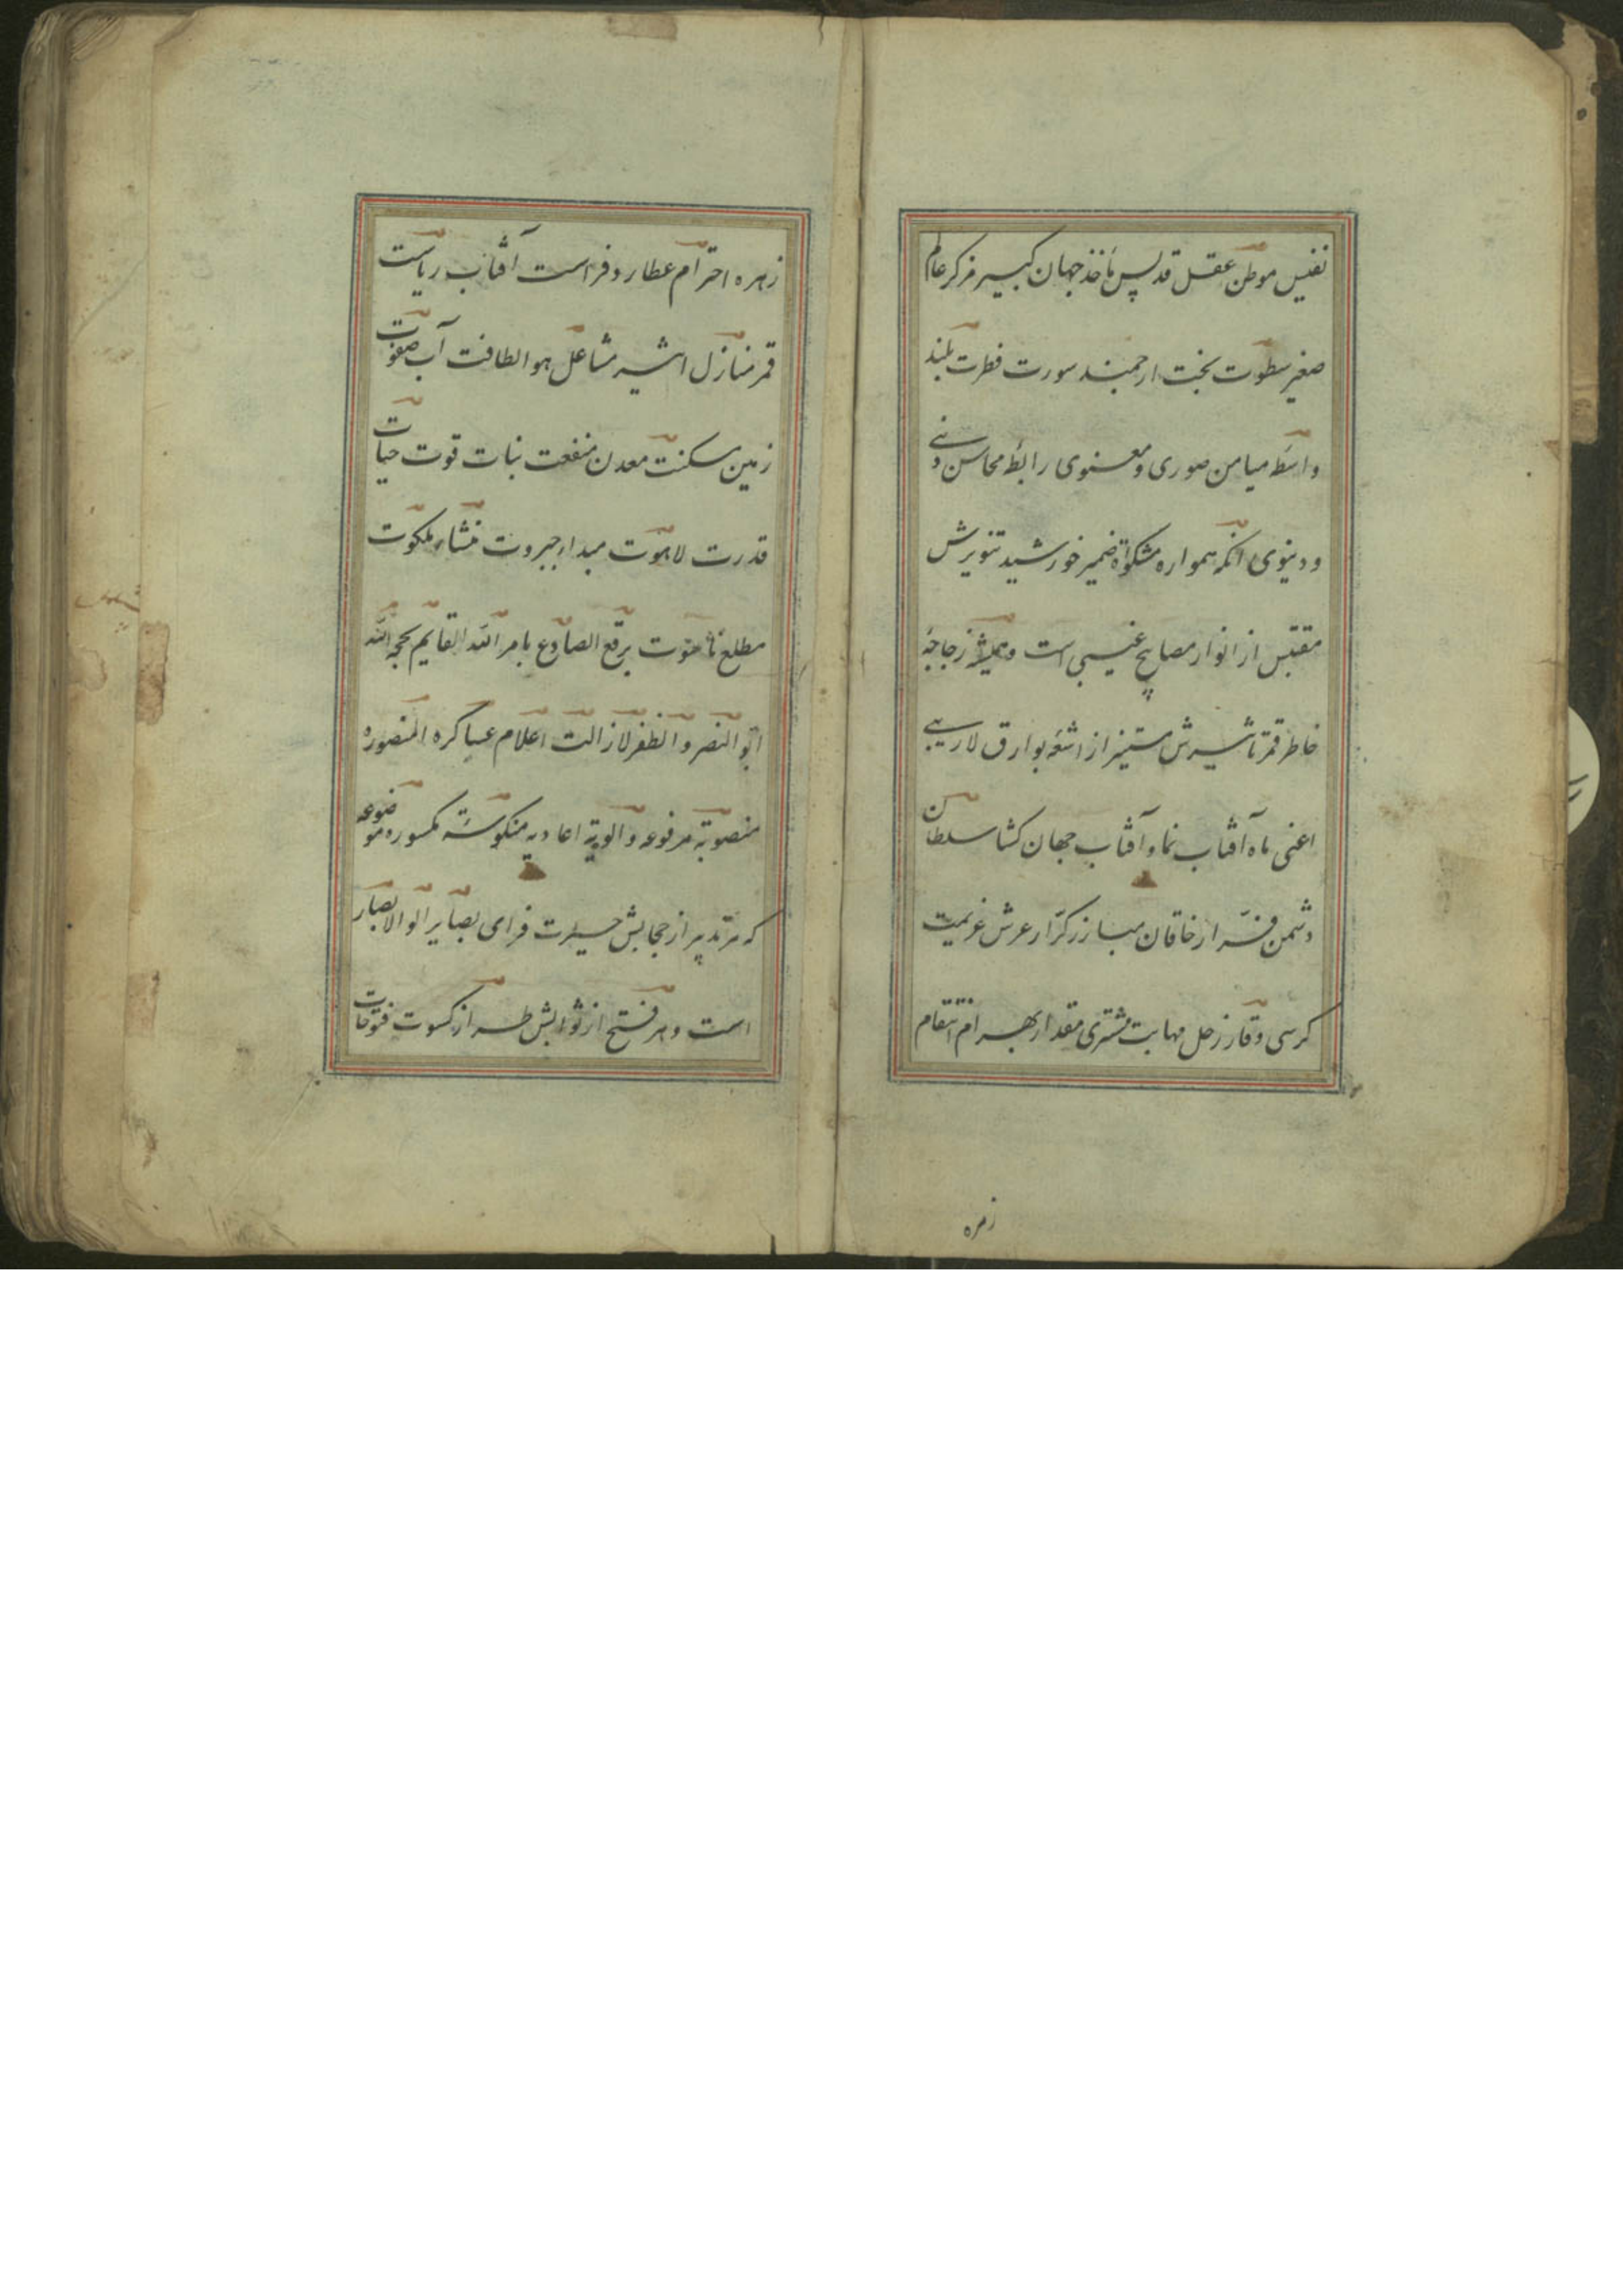 نفیس موطن عقل قدیس مأخذ جهان کبیر مرکز عالم
صغیر سطوت بخت ارجمند سورت فطرت بلند
واسطهٔ میامن صوری و معنوی رابطهٔ محاسن دینی
و دنیوی انکه همواره مشکوٰة ضمیر خورشید تنویرش
مقتبس از انوار مصابیح غیبی است و همیشه زجاجهٔ
خاطر قمر تاثیرش مستنیر از اشعهٔ بوارق لاریبی
اعنی ماه آفتاب نما و آفتاب جهان کشا سلطان
دشمن فرّار خاقان مبارز کرّار عرش عزیمت
کرسی وقار زحل مهابت مشتری مقدار بهرام انتقام
زهره
زهره احترام عطارد فراست آفتاب ریاست
قمر منازل اثیر مشاعل هوا لطافت آب صفوت
زمین سکنت معدن منفعت نبات قوت حیات
قدرت لاهوت مبداء جبروت منشاء ملکوت
مطلع ناسوت برقع الصادع بامر الله القایم بحجة الله
ابو النصر و الظفر لازالت اعلام عساکره المنصوره
منصوبة مرفوعه و الویة اعادیه منکوسة مکسوره موضوعه
که هر تدبیر از حجابش حیرت فزای بصایر الوالابصار
است و هر فتح از نوابش طراز کسوت فتوحات